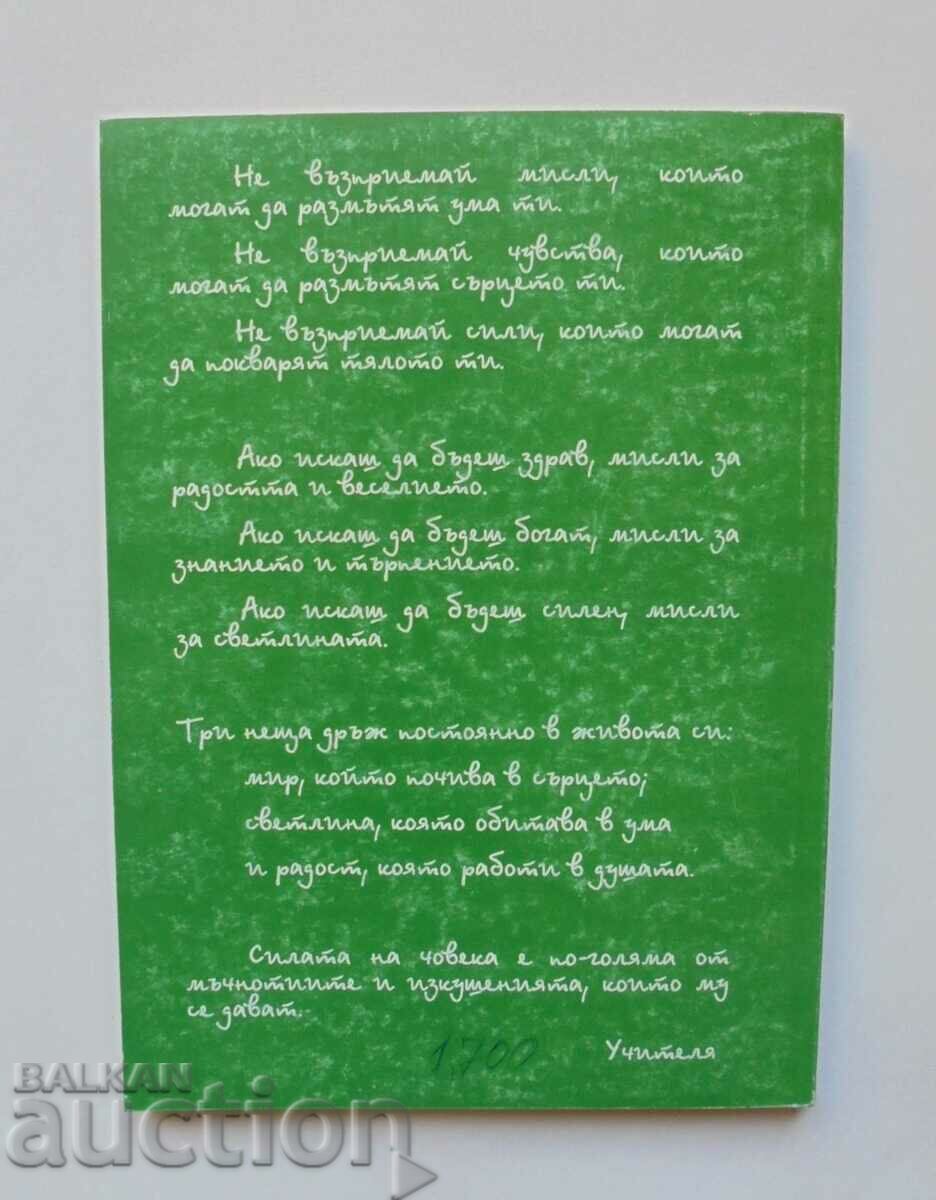 Не възприемай мисли, които
могат да размътят ума ти.
Не възприемай чувства, които
могат да размътят сърцето ти.
Не възприемай сили, които могат
да покварят тялото ти.
Ако искаш да бъдеш здрав, мисли за
радостта и веселието.
Ако искаш да бъдеш богат, мисли за
знанието и търпението.
Ако искаш да бъдеш силен, мисли
за светлината.
Три неща дръж постоянно в живота си:
мир, който почива в сърцето;
светлина, която обитава в ума
и радост, която работи в душата.
Силата на човека е по-голяма от
мъчнотиите и изкушенията, които му
се дават.
1,700
Учителя
BALKAN
auction